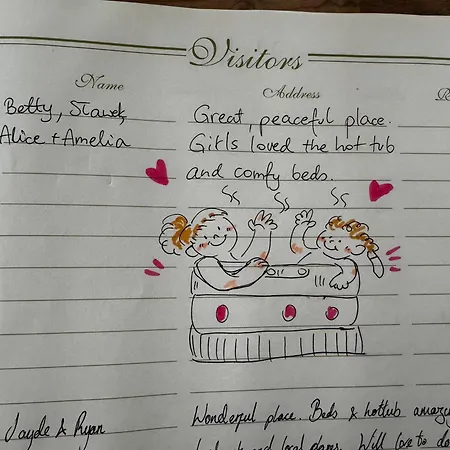 Visitors
Name
Address
R
Betty, Slavek
Alice + Amelia
Great, peaceful place.
Girls loved the hot tub
and comfy beds.
Jayde & Ryan
Wonderful place. Beds & hottub amazing
and local Will love to